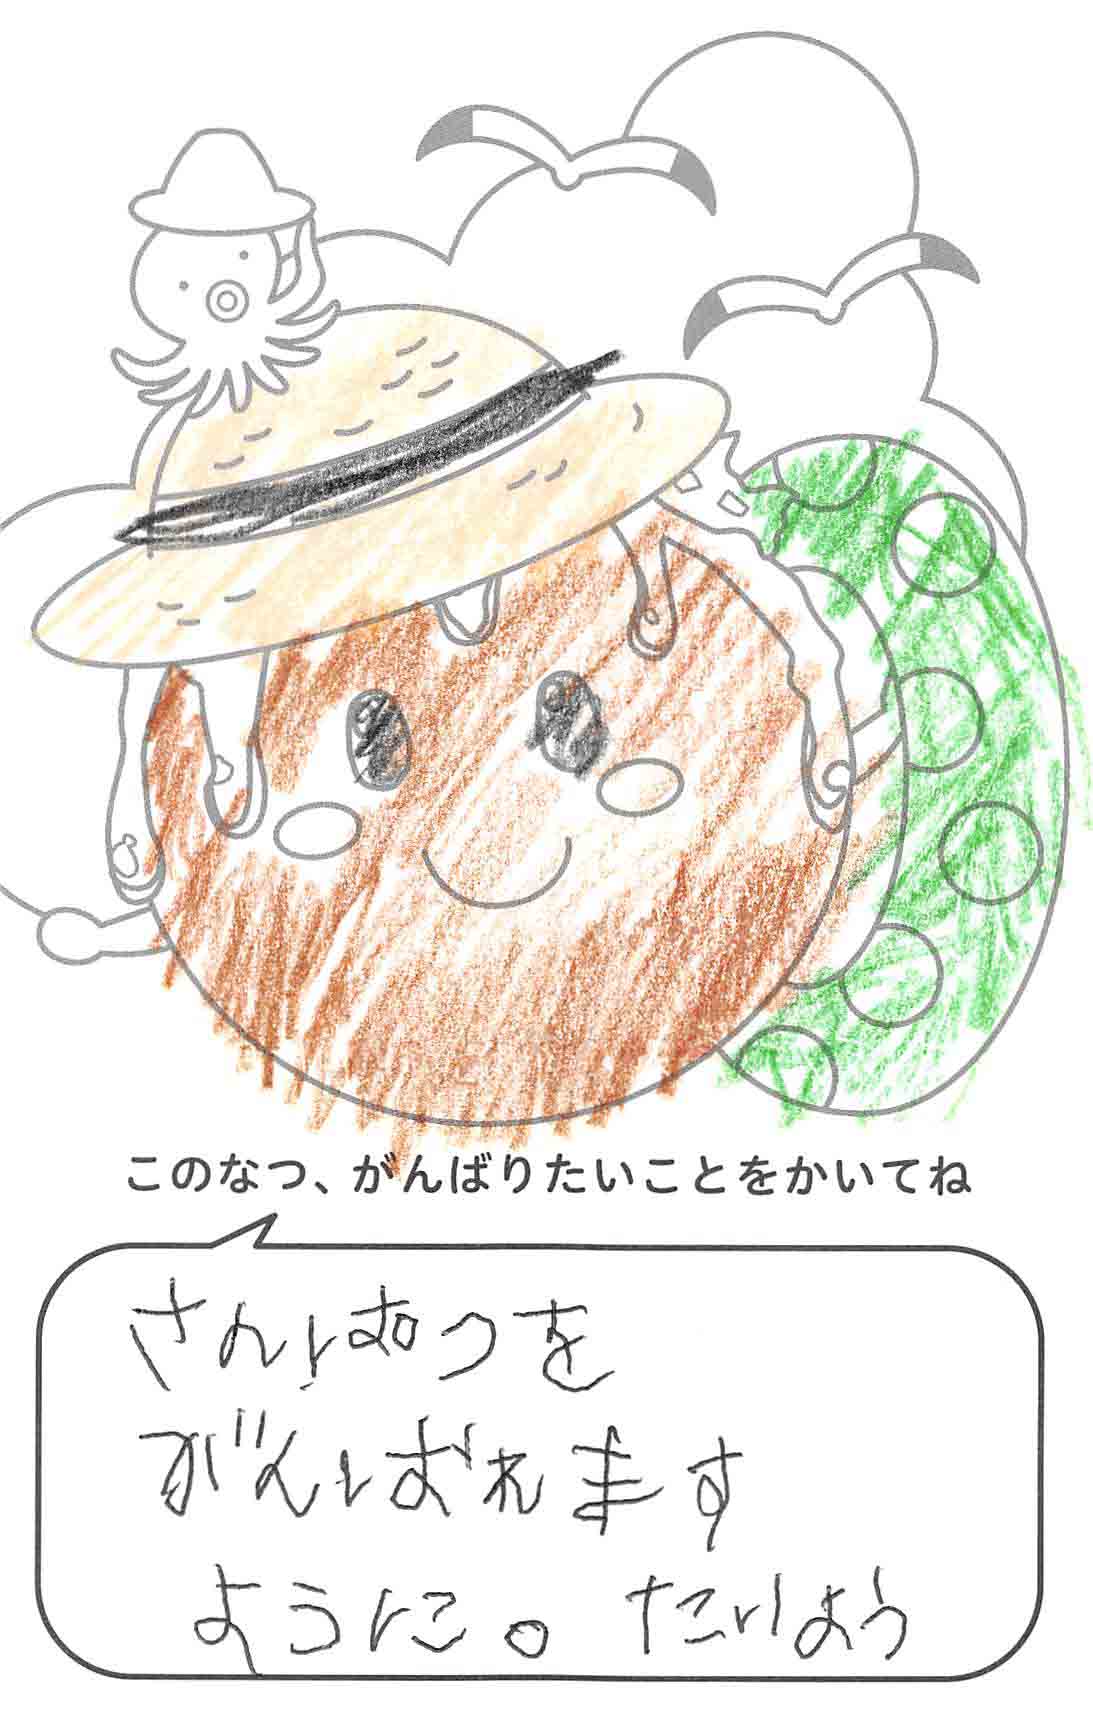 このなつ、がんばりたいことをかいてね
さんぱつを
がんばれます
ように。 たいよう